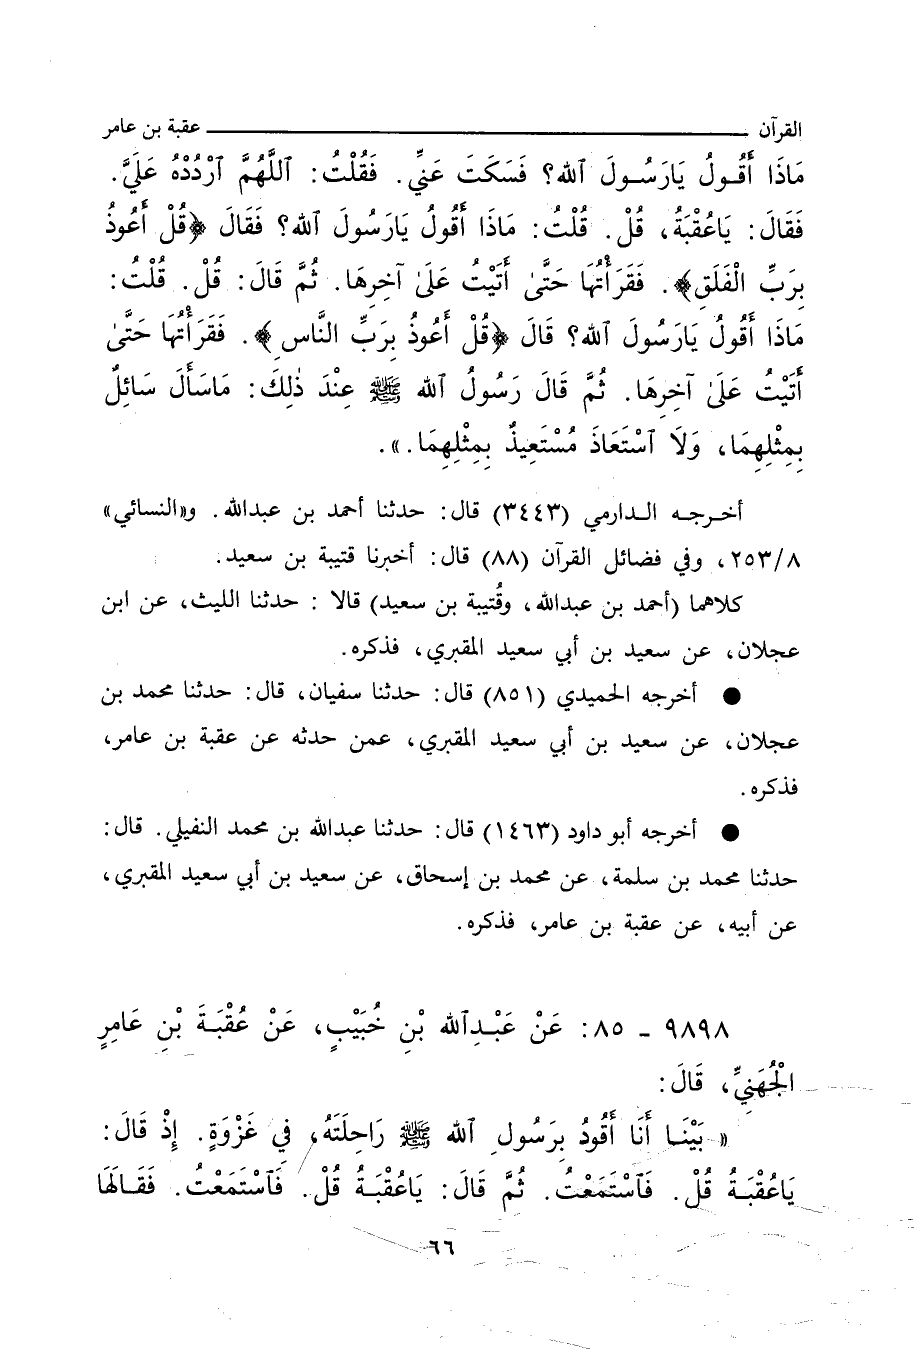 القرآن ــــــــــــــــــــ عقبة بن عامر
مَاذَا أَقُـولُ يَارَسُـولَ ٱلله؟ فَسَكَتَ عَنِّي. فَقُلْتُ: ٱللَّهُمَّ ٱرْدُدْهُ عَلَيَّ.
فَقَالَ: يَاعُقْبَةُ، قُلْ. قُلْتُ: مَاذَا أَقُولُ يَارَسُولَ ٱلله؟ فَقَالَ ﴿قُلْ أَعُوذُ
بِرَبِّ الْفَلَقِ﴾. فَقَرَأْتُهَا حَتَّىٰ أَتَيْتُ عَلَىٰ آخِرِهَا. ثُمَّ قَالَ: قُلْ. قُلْتُ:
مَاذَا أَقُولُ يَارَسُولَ ٱلله؟ قَالَ ﴿قُلْ أَعُوذُ بِرَبِّ النَّاسِ﴾. فَقَرَأْتُهَا حَتَّىٰ
أَتَيْتُ عَلَىٰ آخِرِهَا. ثُمَّ قَالَ رَسُولُ ٱلله ﷺ عِنْدَ ذٰلِكَ: مَاسَأَلَ سَائِلٌ
بِمِثْلِهِمَا، وَلَا ٱسْتَعَاذَ مُسْتَعِيذٌ بِمِثْلِهِمَا.».
أخـرجـه الـدارمي (٣٤٤٣) قال: حدثنا أحمد بن عبدالله. و«النسائي»
٢٥٣/٨، وفي فضائل القرآن (٨٨) قال: أخبرنا قتيبة بن سعيد.
كلاهما (أحمد بن عبدالله، وقُتيبة بن سعيد) قالا: حدثنا الليث، عن ابن
عجلان، عن سعيد بن أبي سعيد المقبري، فذكره.
● أخرجه الحميدي (٨٥١) قال: حدثنا سفيان، قال: حدثنا محمد بن
عجلان، عن سعيد بن أبي سعيد المقبري، عمن حدثه عن عقبة بن عامر،
فذكره.
● أخرجه أبو داود (١٤٦٣) قال: حدثنا عبدالله بن محمد النفيلي. قال:
حدثنا محمد بن سلمة، عن محمد بن إسحاق، عن سعيد بن أبي سعيد المقبري،
عن أبيه، عن عقبة بن عامر، فذكره.
٩٨٩٨ ـ ٨٥: عَنْ عَبْـدِٱلله بْنِ خُبَيْبٍ، عَنْ عُقْبَـةَ بْنِ عَامِرٍ
الْجُهَنِيِّ، قَالَ:
« بَيْنَـا أَنَا أَقُودُ بِرَسُولِ ٱلله ﷺ رَاحِلَتَهُ، فِي غَزْوَةٍ. إِذْ قَالَ:
يَاعُقْبَـةُ قُلْ. فَٱسْتَمَعْتُ. ثُمَّ قَالَ: يَاعُقْبَـةُ قُلْ. فَٱسْتَمَعْتُ. فَقَـالَهَا
٦٦